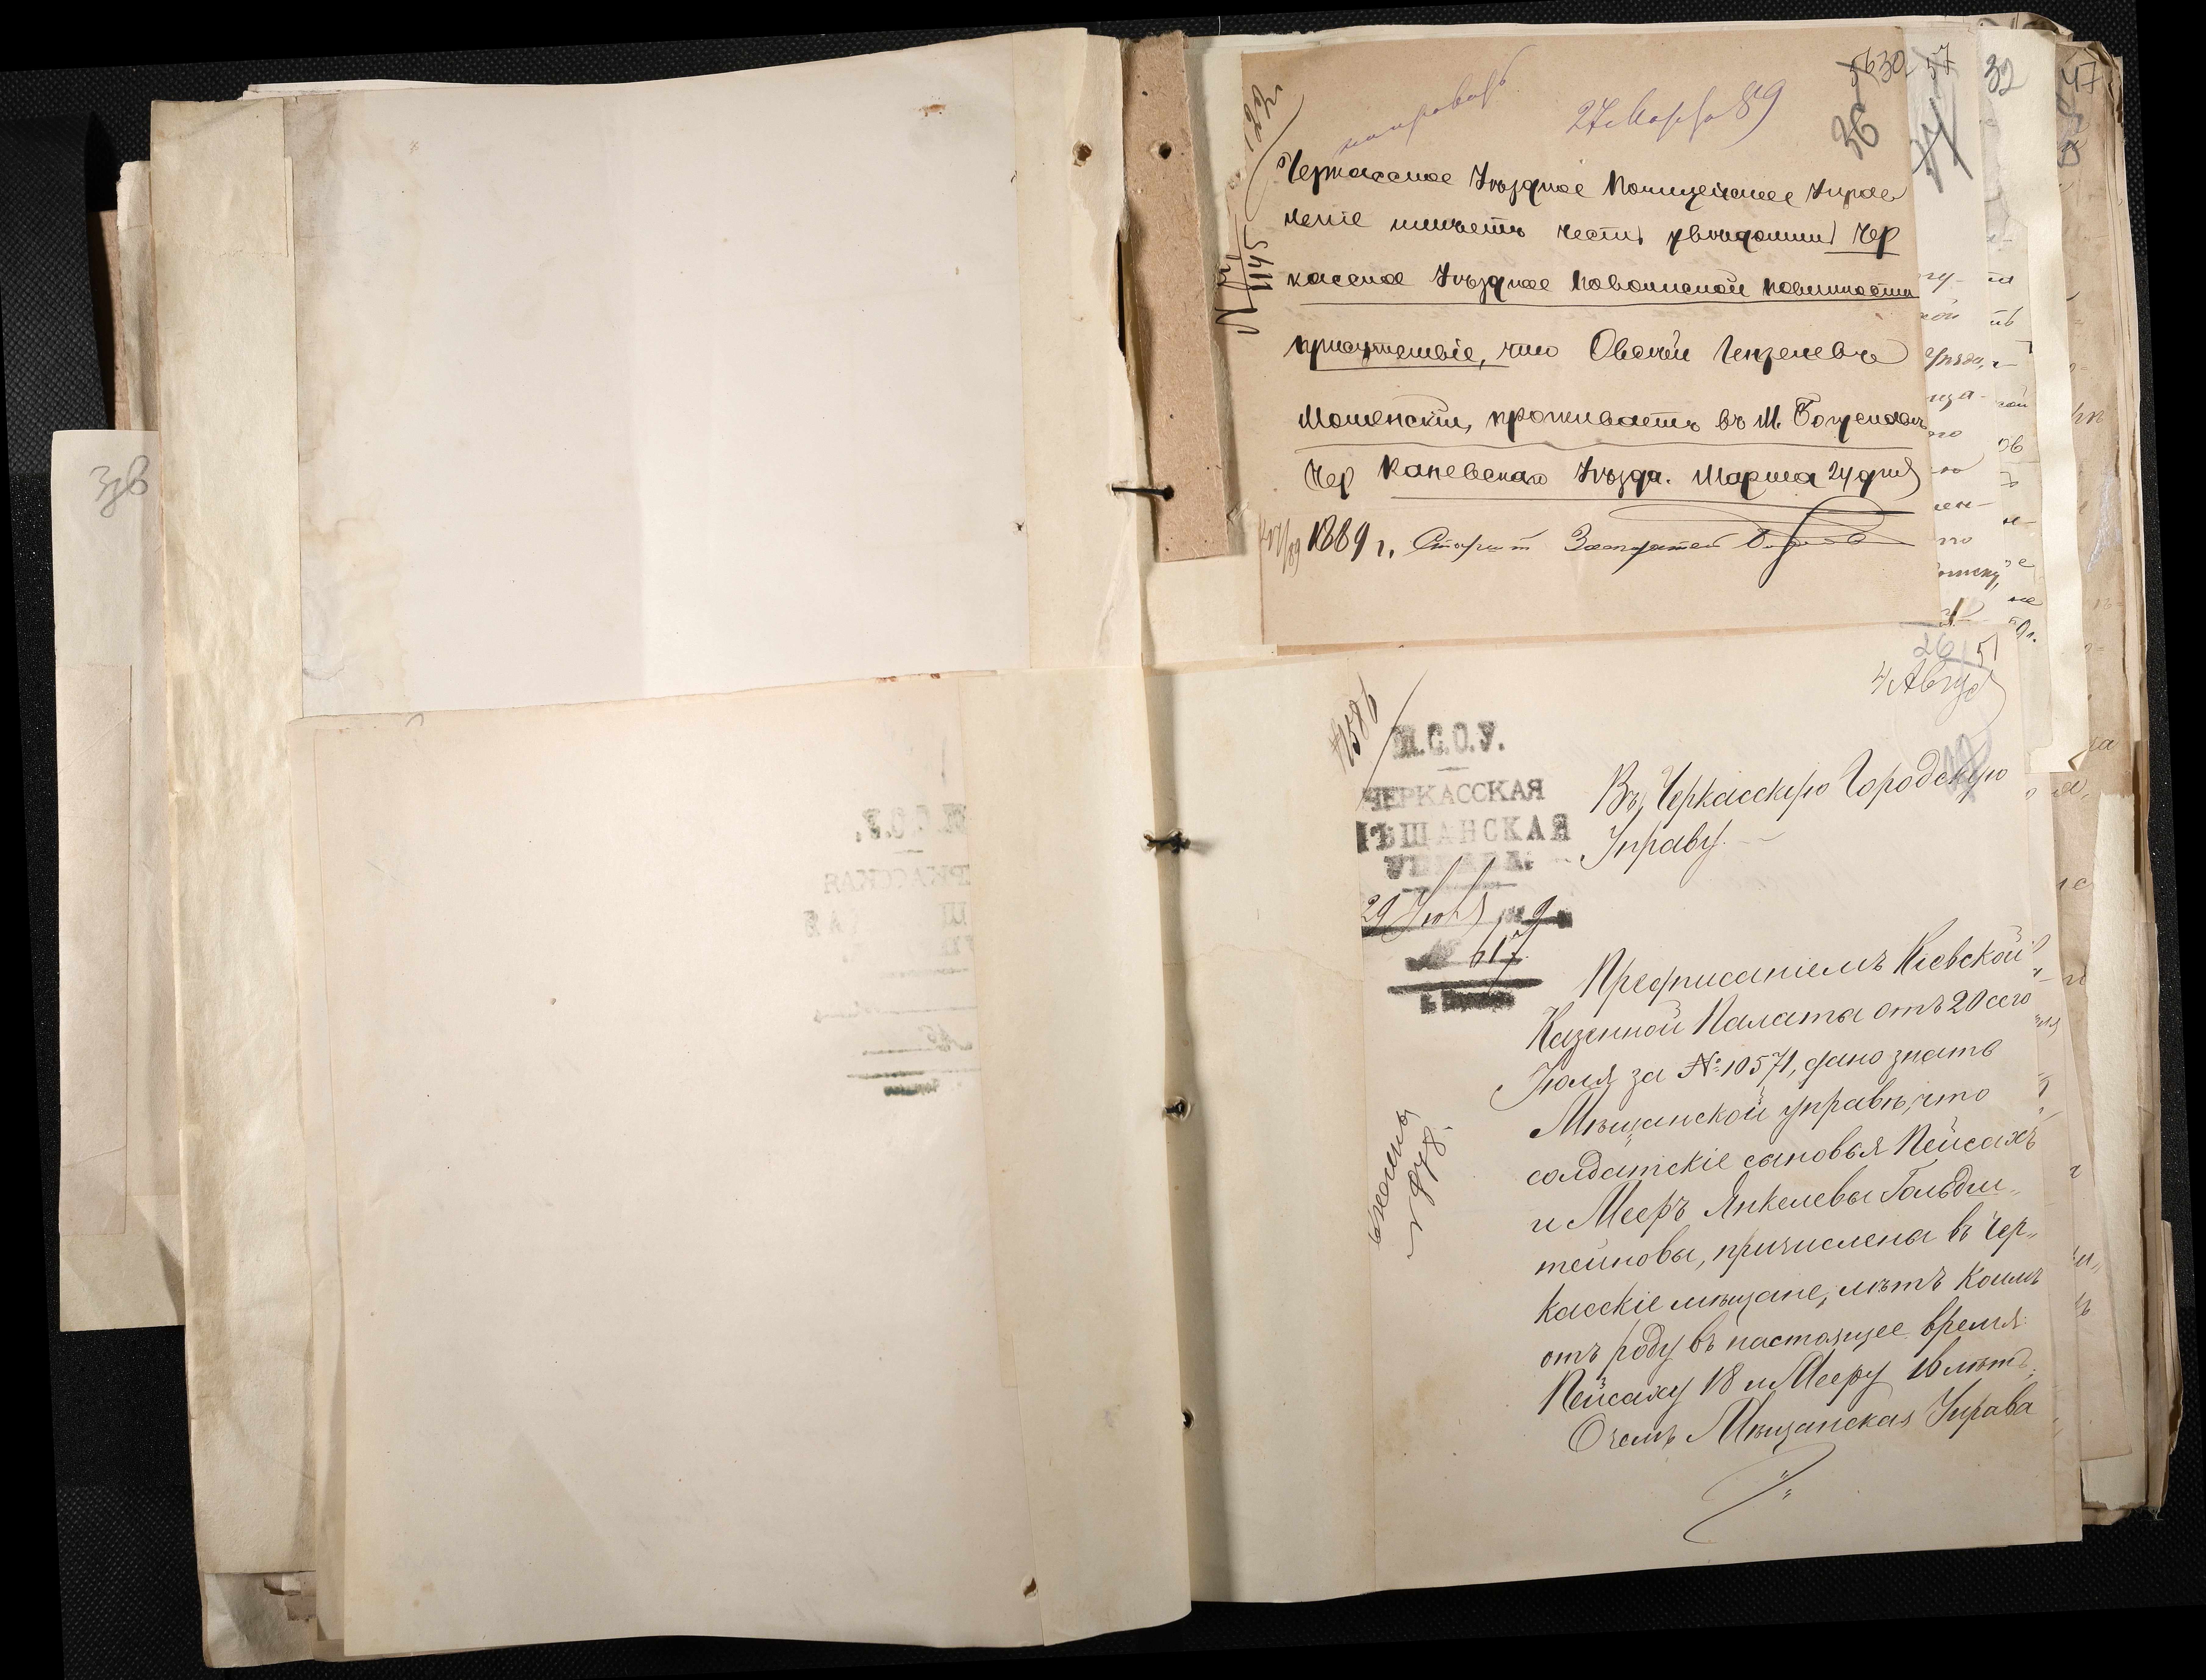 328
27 Марта 89
5630
36
Черкасское Уѣздное Полицейское Управ
леніе имѣетъ честь увѣдомить Чер
касское Уѣздное По воинской повинности
присутствіе, что Овсей Гензелевъ
Мошенскій, проживаетъ въ М.
Чер Каневскаго Уѣзда. Марта 24 дня
1889 г.
№ 1145
57
32
47
26
51
4 Авгус
М.С.О.У.
ЧЕРКАССКАЯ
МѢЩАНСКАЯ
УПРАВА.
29 Іюля 9
№ 617
Въ Черкасскую Городскую
Управу.
Предписаніемъ Кіевской
Казенной Палаты отъ 20 сего
Іюля за № 10571, дано знать
Мѣщанской управѣ, что
солдатскіе сыновья Пейсахъ
и Мееръ Янкелевы Гольдш-
тейновы, причислены въ Чер-
касскіе мѣщане, лѣтъ коимъ
отъ роду въ настоящее время:
Пейсаху 18 и Мееру 16 лѣтъ.
О чемъ Мѣщанская Управа